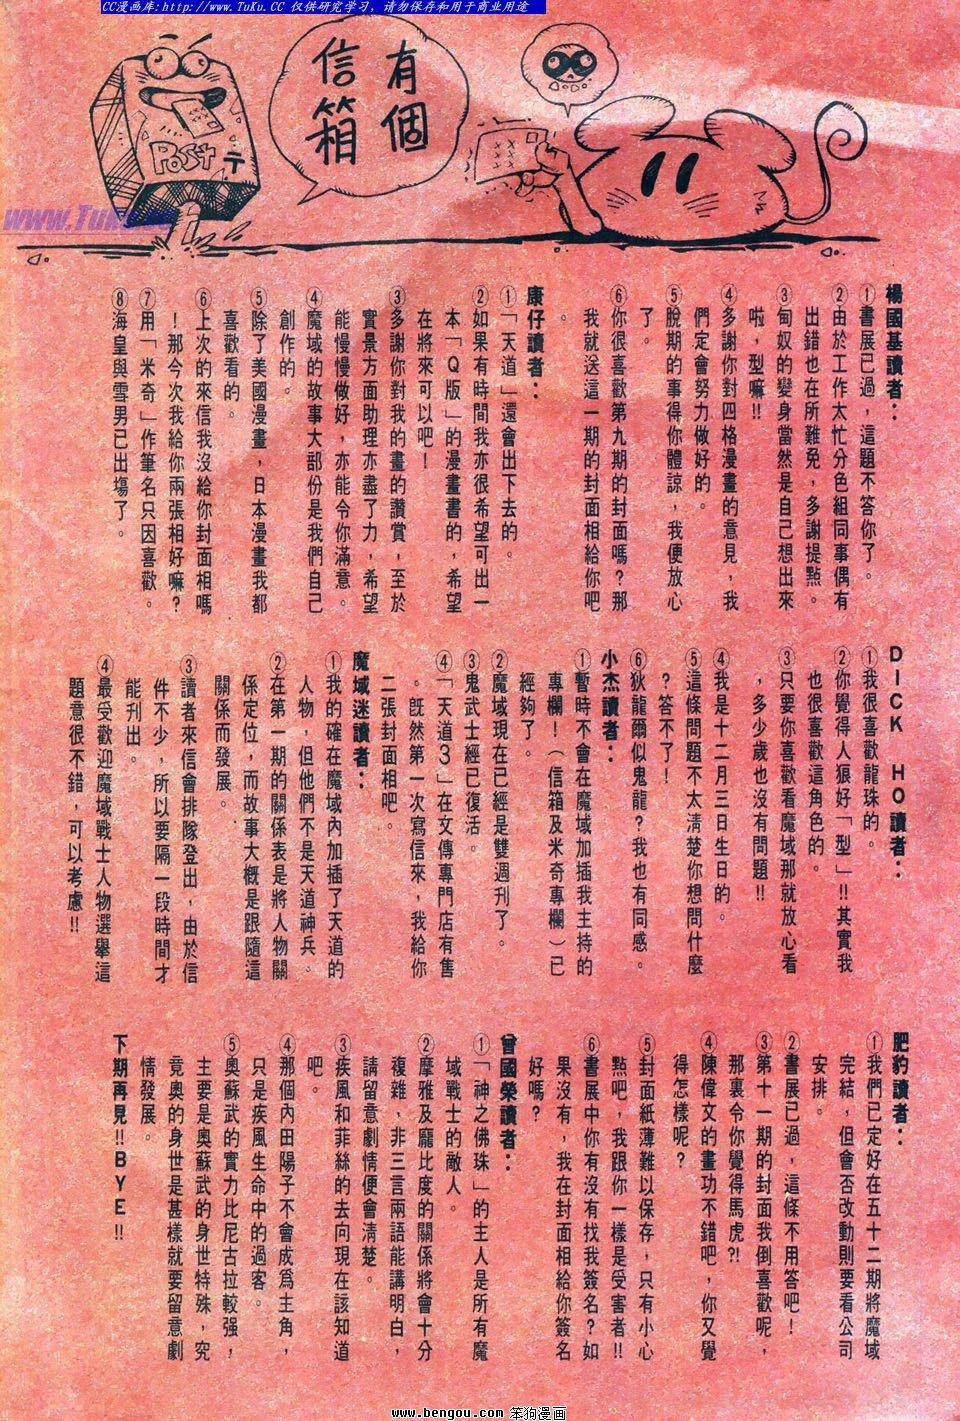 CC漫画库:http://www.TuKu.CC 仅供研究学习，请勿保存和用于商业用途
有個
信箱
POST
〒
www.TuKu.cc
楊國基讀者：
①書展已過，這題不答你了。
②由於工作太忙分色組同事偶有
出錯也在所難免，多謝提點。
③匈奴的變身當然是自己想出來
啦，型嘛!!
④多謝你對四格漫畫的意見，我
們定會努力做好的。
⑤脫期的事得你體諒，我便放心
了。
⑥你很喜歡第九期的封面嗎？那
我就送這一期的封面相給你吧
。
康仔讀者：
①「天道」還會出下去的。
②如果有時間我亦很希望可出一
本「Q版」的漫畫書的，希望
在將來可以吧！
③多謝你對我的畫的讚賞，至於
實景方面助理亦盡了力，希望
能慢慢做好，亦能令你滿意。
④魔域的故事大部份是我們自己
創作的。
⑤除了美國漫畫，日本漫畫我都
喜歡看的。
⑥上次的來信我沒給你封面相嗎
！那今次我給你兩張相好嘛？
⑦用「米奇」作筆名只因喜歡。
⑧海皇與雪男已出場了。
DICK HO讀者：
①我很喜歡龍珠的。
②你覺得人狼好「型」!!其實我
也很喜歡這角色的。
③只要你喜歡看魔域那就放心看
，多少歲也沒有問題!!
④我是十二月三日生日的。
⑤這條問題不太清楚你想問什麼
？答不了！
⑥狄龍爾似鬼龍？我也有同感。
小杰讀者：
①暫時不會在魔域加插我主持的
專欄！（信箱及米奇專欄）已
經夠了。
②魔域現在已經是雙週刊了。
③鬼武士經已復活。
④「天道3」在文傳專門店有售
。既然第一次寫信來，我給你
二張封面相吧。
魔域迷讀者：
①我的確在魔域內加插了天道的
人物，但他們不是天道神兵。
②在第一期的關係表是將人物關
係定位，而故事大概是跟隨這
關係而發展。
③讀者來信會排隊登出，由於信
件不少，所以要隔一段時間才
能刊出。
④最受歡迎魔域戰士人物選舉這
題意很不錯，可以考慮!!
肥豹讀者：
①我們已定好在五十二期將魔域
完結，但會否改動則要看公司
安排。
②書展已過，這條不用答吧！
③第十一期的封面我倒喜歡呢，
那裏令你覺得馬虎?!
④陳偉文的畫功不錯吧，你又覺
得怎樣呢？
⑤封面紙薄難以保存，只有小心
點吧，我跟你一樣是受害者!!
⑥書展中你有沒有找我簽名？如
果沒有，我在封面相給你簽名
好嗎？
曾國榮讀者：
①「神之佛珠」的主人是所有魔
域戰士的敵人。
②摩雅及龐比度的關係將會十分
複雜，非三言兩語能講明白，
請留意劇情便會清楚。
③疾風和菲絲的去向現在該知道
吧。
④那個內田陽子不會成為主角，
只是疾風生命中的過客。
⑤奧蘇武的實力比尼古拉較强，
主要是奧蘇武的身世特殊，究
竟奧的身世是甚樣就要留意劇
情發展。
下期再見!!BYE!!
www.bengou.com 笨狗漫画